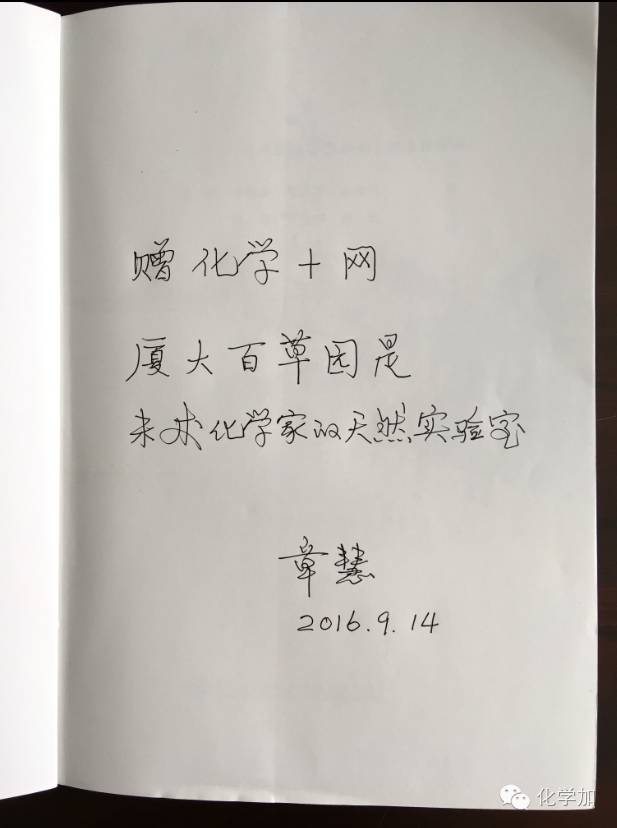 赠化学+网
厦大百草园是
未来化学家的天然实验室
章慧
2016.9.14
化学加